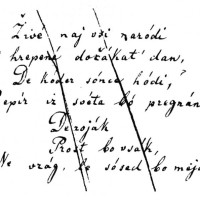 Živé naj vsi naródi
hrepené dočákat' dan,
De kóder sónce hódi,
Prepír iz svéta bó pregnán
De roják
Prost bo vsák,
Ne vrág, le sósed bo mejá